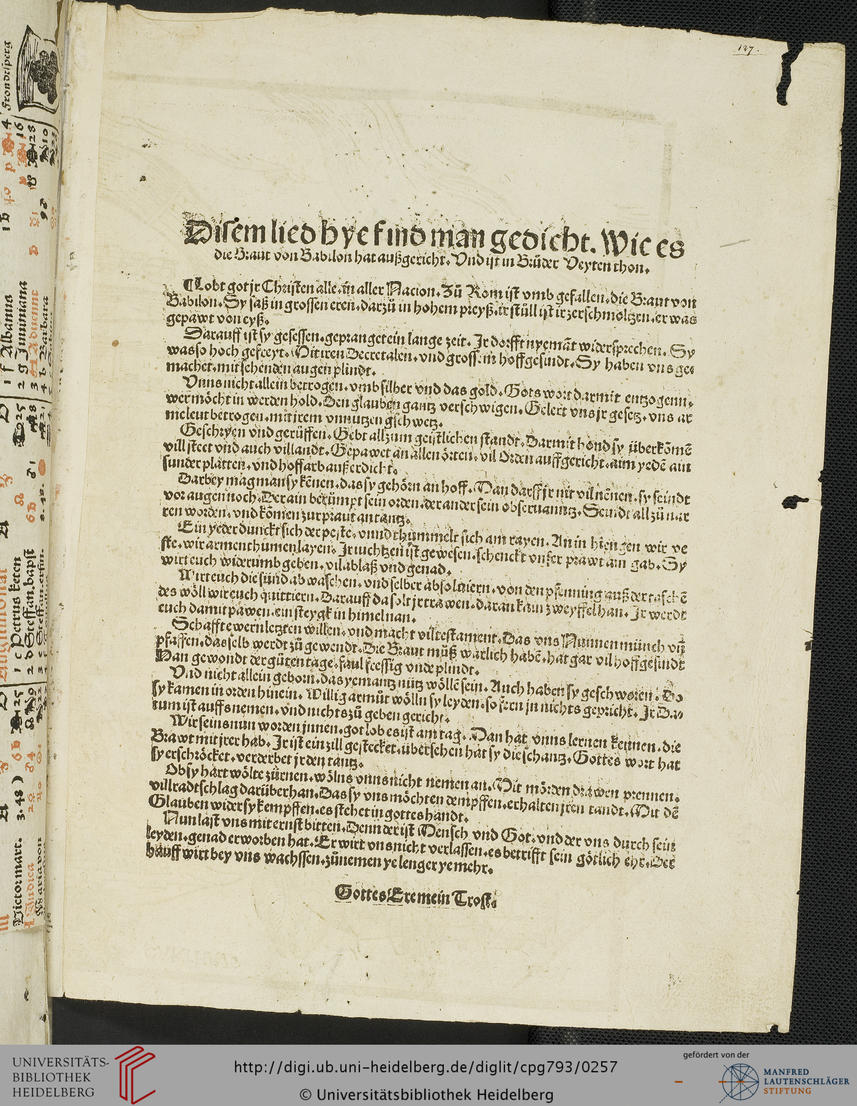 127.
Disem lied hye find man gedicht. Wie es
die Braut von Babilon hat außgericht. Vnd ist in Brůder Veyten thon.
Lobt got jr Christen alle. in aller Nacion. Zů Rom ist vmb gefallen. die Braut von
Babilon. Sy saß in grossen eren. darzů in hohem preyß. ir stůll ist ir zerschmoltzen. er was
gepawt von eyß.
Darauff ist sy gesessen. gepranget ein lange zeit. Ir dorfft nyemāt widersprechen. Sy
was so hoch gefreyt. Mit iren Decretalen. vnd gross in hoffgesindt. Sy haben vns ge⸗
machet. mit sehenden augen plindt.
Vnns nicht allein betrogen. vmb silber vnd das gold. Gots wort darmit entzogenn.
wer möcht in werden hold. Den glauben gantz verschwigen. Gelert vns jr gesetz. vns ar
me leut betrogen. mit jrem vnnutzen gschwetz.
Geschryen vnd gerüffen. Gebt all zum geistlichen standt. Darmit hond sy überkōmē
vill steet vnd auch vil landt. Gepawet an allen örten. vil Orden auffgericht. aim yedē ain
sunder platten. vnd hoffart außerdicht.
Darbey mag man sy kēnen. das sy gehörn an hoff. Man darff jr nit vil nēnen. sy seindt
vor augen noch. Der ain berümpt sein orden. der ander sein obseruanntz. Seindt all zů nar
ren worden. vnd kōmen zur praut an tantz.
Ein yeder dunckt sich der peste. vnnd thummelt sich am rayen. An in hiengen wir ve
ste. wir armen thumen layen. Ir wuchtzen ist gewesen. schenckt vnser prawt am gab. Sy
wirt euch widerumb geben. vil ablaß vnd genad.
Wirt euch die sünd ab waschen. vnd selber absoluiern. von den pfenning auß der taschē
des wöll wir euch quittiern. Darauff da solt jr trawen. daran kain zweyffel han. Ir werdt
euch damit pawen. ein steyg kin himel nan.
Schaffte wern letzten willen. vnd macht vil testament. Das vns Nunnen münch vn̄
pfaffen. das selb werdt zů gewendt. Die Braut můß warlich habē. hat gar vil hoffgesindt
Han gewondt der gůten tage. faul fressig vnd plindt.
Vnd nicht allein geborn. das yemantz nütz wöllē sein. Auch haben sy geschworen. Do
sy kamen in orden hinein. Willig armůt wölln sy leyden. so fern jn nichts gepricht. Ir Da⸗
tum ist auffs nemen. vnd nichts zů geben gericht.
Wir seins nun worden jnnen. got lob es ist am tag. Man hat vnns lernen kennen. die
Brawt mit jrer hab. Ir ist ein zill gestecket. übersehen hat sy die schantz. Gottes wort hat
sy erschröcket. verderbet jr den tantz.
Ob sy hart wölte zürnen. wölns vnns nicht nemen an. Mit mörden drawen prennen.
vill radtschlag darüber han. Das sy vns möchten dempffen. erhalten jren tandt. Mit dē
Glauben wider sy kempffen. es stehet in gottes handt.
Nun last vns mit ernst bitten. Denn der ist Mensch vnd Got. vnd der vns durch sein
leyden. genad erworben hat. Er wirt vns nicht verlassen. es betrifft sein götlich ehr. Der
hauff wirt bey vns wachssen. zůnemen ye lenger ye mehr.
Gottes Ere mein Trost.
UNIVERSITÄTS-
BIBLIOTHEK
HEIDELBERG
http://digi.ub.uni-heidelberg.de/diglit/cpg793/0257
© Universitätsbibliothek Heidelberg
gefördert von der
MANFRED
LAUTENSCHLÄGER
STIFTUNG